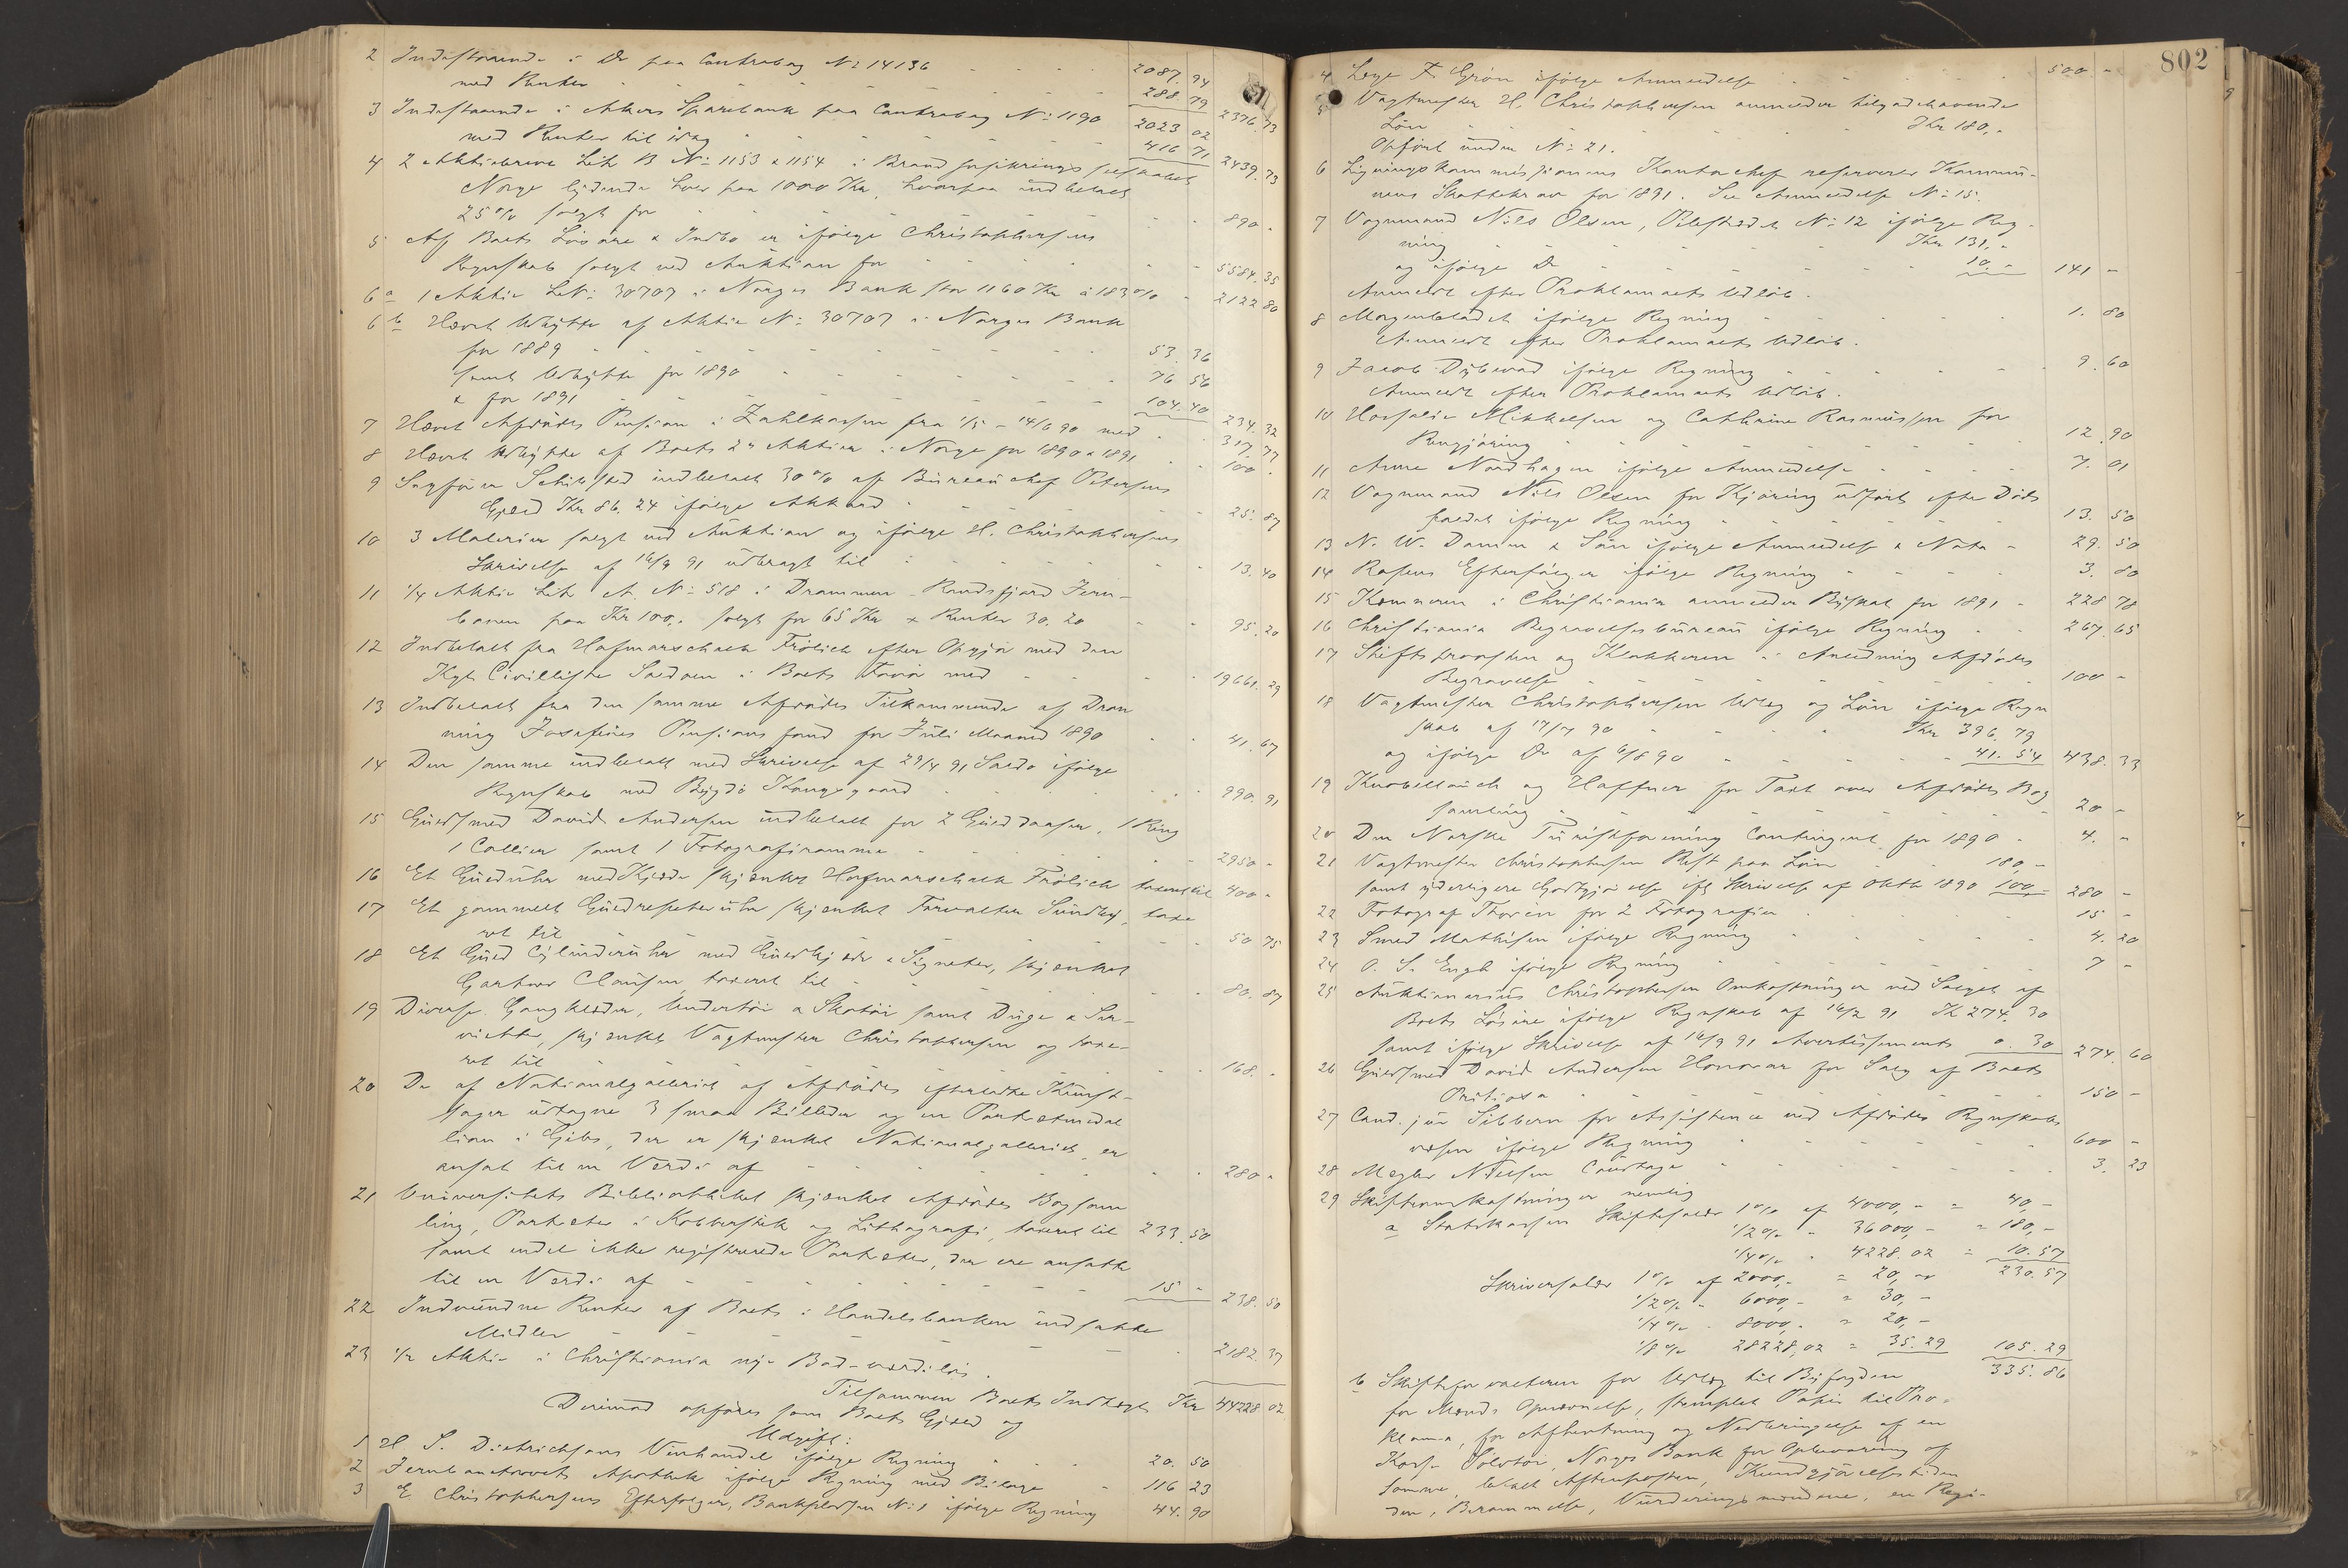 2 Indestaaende i Do paa Contrabog No 14136 2087. 94
med Renter 288 79 2376. 73
3 Indestaaende i Akers Sparebank paa Contrabog No 1190 2023 02
med Renter til idag 416 71 2439. 73
4 2 Aktiebreve Litr B No 1153 & 1154 i Brandforsikringsselskabet
Norge lydende hver paa 1000 Kr, hvorpaa indbetalt
25% solgt for 890 -
5 Af Boets Løsøre & Indbo er ifølge Christophersens
Regnskab solgt ved Auktion for 5584. 35
6a 1 Aktie L No 30707 i Norges Bank stor 1160 Kr à 183% 2122 80
6b Hævet Udbytte af Aktie No 30707 i Norges Bank
for 1889 53. 36
samt Udbytte for 1890 76 56
& for 1891 104. 40 234. 32
7 Hævet Afdødes Pension i Zahlkassen fra 1/5 - 14/6 90 med 317. 77
8 Hævet Udbytte af Boets 2 Aktier i Norge for 1890 & 1891 100 -
9 Sagfører Schibsted indbetalt 30% af Bureauchef Petersens
Gjæld Kr 86. 24 ifølge Akkord 25. 87
10 3 Malerier solgt ved Auktion og ifølge H. Christophersens
Skrivelse af 16/9 91 udbragt til 13. 40
11 1/4 Aktie Litr A. No 518 i Drammen - Randsfjord Jern-
banen paa Kr 100,- solgt for 65 Kr & Renter 30. 20 95. 20
12 Indbetalt fra Hofmarschalk Frölich efter Opgjør med den
Kgl. Civilliste Saldoen i Boets Favør med 19661. 29
13 Indbetalt fra den samme Afdødes Tilkommende af Dron
ning Josefines Pensionsfond for Juli Maaned 1890 41. 67
14 Den samme indbetalt med Skrivelse af 29/4 91 Saldo ifølge
Regnskab med Bygdø Kongsgaard 990. 91
15 Guldsmed David Andersen indbetalt for 2 Gulddaaser, 1 Ring
1 Collier samt 1 Fotografiramme 2950 -
16 Et Gulduhr med Kjæde skjænket Hofmarschalk Frölich taxeret til 400 -
17 Et gammelt Guldrepeteruhr skjænket Forvalter Sundby, taxe
ret til 50 75
18 Et Guld Cylinderuhr med Guldkjæde & Signeter, skjænket
Gartner Clausen, taxeret til 80. 87
19 Diverse Gangklæder, Undertøi & Skotøi samt Duge & Ser-
vietter, skjænket Vagtmester Christophersen og taxe-
ret til 168. -
20 De af Nationalgalleriet af Afdødes efterladte Kunst-
sager udtagne 3 smaa Billeder og en Portrætmedal
lion i Gibs, der er skjænket Nationalgalleriet, er
ansat til en Værdi af 280 -
21 Universitets Bibliotheket skjænket Afdødes Bogsam
ling, Portræter i Kobberstik og Lithografi, taxeret til 233. 50
samt endel ikke registrerede Portræter, der ere ansatte
til en Værdi af 15 - 238. 50
22 Indvundne Renter af Boets i Handelsbanken indsatte
Midler 2182. 37
23 1/2 Aktie i Christiania nye Bad - værdiløs.
Tilsammen Boets Indtægt Kr 44228 02
Derimod opføres som Boets Gjæld og
Udgift:
1 H. S. Dietrichsons Vinhandel ifølge Regning 20. 50
2 Jernbanetorvets Apothek ifølge Regning med Bilage 116 23
3 E Christophersens Efterfølger, Bankpladsen No 1 ifølge Regning 44. 90
802
4 Læge F. Grøn ifølge Anmeldelse 500 -
5 Vagtmester H. Christophersen anmelder tilgodehavende
Løn Kr 180,-
Opført under No 21.
6 Ligningskommissionens Kontorchef reserverer Kommu-
nens Skattekrav for 1891. Se Anmeldelse No 15.
7 Vognmand Nils Olsen, Pilestrædet No 12 ifølge Reg-
ning Kr 131,-
og ifølge Do 10,- 141 -
Anmeldt efter Proklamaets Udløb.
8 Morgenbladet ifølge Regning 1. 80
Anmeldt efter Proklamaets Udløb.
9 Jacob Dybwad ifølge Regning 9. 60
Anmeldt efter Proklamaets Udløb.
10 Mikkelsen og Cathrine Rasmussen for
Rengjøring 12. 90
11 Anne Nordhagen ifølge Anmeldelse 7. 01
12 Vognmand Nils Olsen for Kjøring udført efter Døds
faldet ifølge Regning 13. 50
13 N. W. Damm & Søn ifølge Anmeldelse & Nota 29. 50
14 Efterfølger ifølge Regning 3. 80
15 Kæmneren i Christiania anmelder Byskat for 1891 - 228 78
16 Christiania Begravelsesbureau ifølge Regning 267. 65
17 Stiftsprovsten og Klokkeren i Anledning Afdødes
Begravelse 100 -
18 Vagtmester Christophersen Udlæg og Løn ifølge Regn
skab af 17/7 90 Kr 396. 79
og ifølge Do af 6/8 90 41. 54 438. 33
19 Knobelauch og Haffner for Taxt over Afdødes Bog
samling 20 -
20 Den Norske Turistforening Contingent for 1890 4. -
21 Vagtmester Christophersen Rest paa Løn 180,-
samt yderligere Godtgjørelse ifl Skrivelse af Oktb 1890 100,- 280 -
22 Fotograf Thorén for 2 Fotografier 15 -
23 Smed Mathisen ifølge Regning 4. 20
24 O. S. Engh ifølge Regning 7 -
25 Auktionarius Christophersen Omkostninger ved Salget af
Boets Løsøre ifølge Regnskab af 16/2 91 Kr 274. 30
samt ifølge Skrivelse af 16/9 91 Avertissements 0. 30 274. 60
26 Guldsmed David Andersen Honorar for Salg af Boets
Pretiosa 150 -
27 Cand. jur Sibbern for Assistence ved Afdødes Regnskabs
væsen ifølge Regning 600 -
28 Mægler Nielsen Courtage 3. 23
29 Skifteomkostninger nemlig
a Statskassen Skiftesalær 1% af 4000,- = 40,-
1/2% - 36000,- = 180,-
1/4% - 4228. 02 = 10. 57
230. 57
Skriversalær 1% af 2000,- = 20,-
1/2% - 6000,- = 30,-
1/4% - 8000,- = 20,-
1/8% 28228,02 = 35. 29 105. 29
335. 86
b Skifteforvalteren for Udlæg til Byfogden
for Mænds Opnævnelse, stemplet Papir til Pro-
klama, for Afhentning og Nedbringelse af en
Kasse Sølvtøi, Norges Bank for Opbevaring af
samme, betalt Aftenposten, Kundgjørelsestiden
den, Berammelse, Vurderingsmændene, en